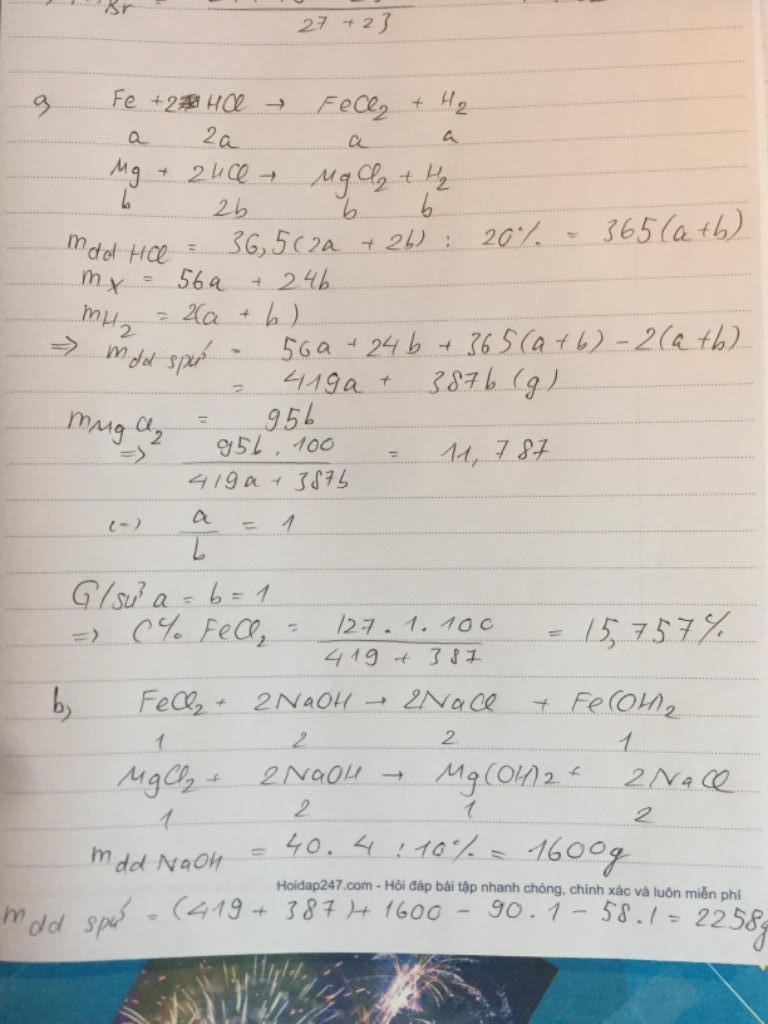 Br
27 + 23
a)
Fe + 2HCl → FeCl2 + H2
a 2a a a
Mg + 2HCl → MgCl2 + H2
b 2b b b
mdd HCl = 36,5(2a + 2b) : 20% = 365(a+b)
mX = 56a + 24b
mH2 = 2(a + b)
=> mdd spứ = 56a + 24b + 365(a+b) - 2(a+b)
= 419a + 387b (g)
mMgCl2 = 95b
=> 95b . 100 / 419a + 387b = 11,787
(-) a/b = 1
G/sử a = b = 1
=> C% FeCl2 = 127.1.100 / 419 + 387 = 15,757%
b) FeCl2 + 2NaOH → 2NaCl + Fe(OH)2
1 2 2 1
MgCl2 + 2NaOH → Mg(OH)2 + 2NaCl
1 2 1 2
mdd NaOH = 40.4 : 10% = 1600g
Hoidap247.com - Hỏi đáp bài tập nhanh chóng, chính xác và luôn miễn phí
mdd spứ = (419 + 387) + 1600 - 90.1 - 58.1 = 2258g